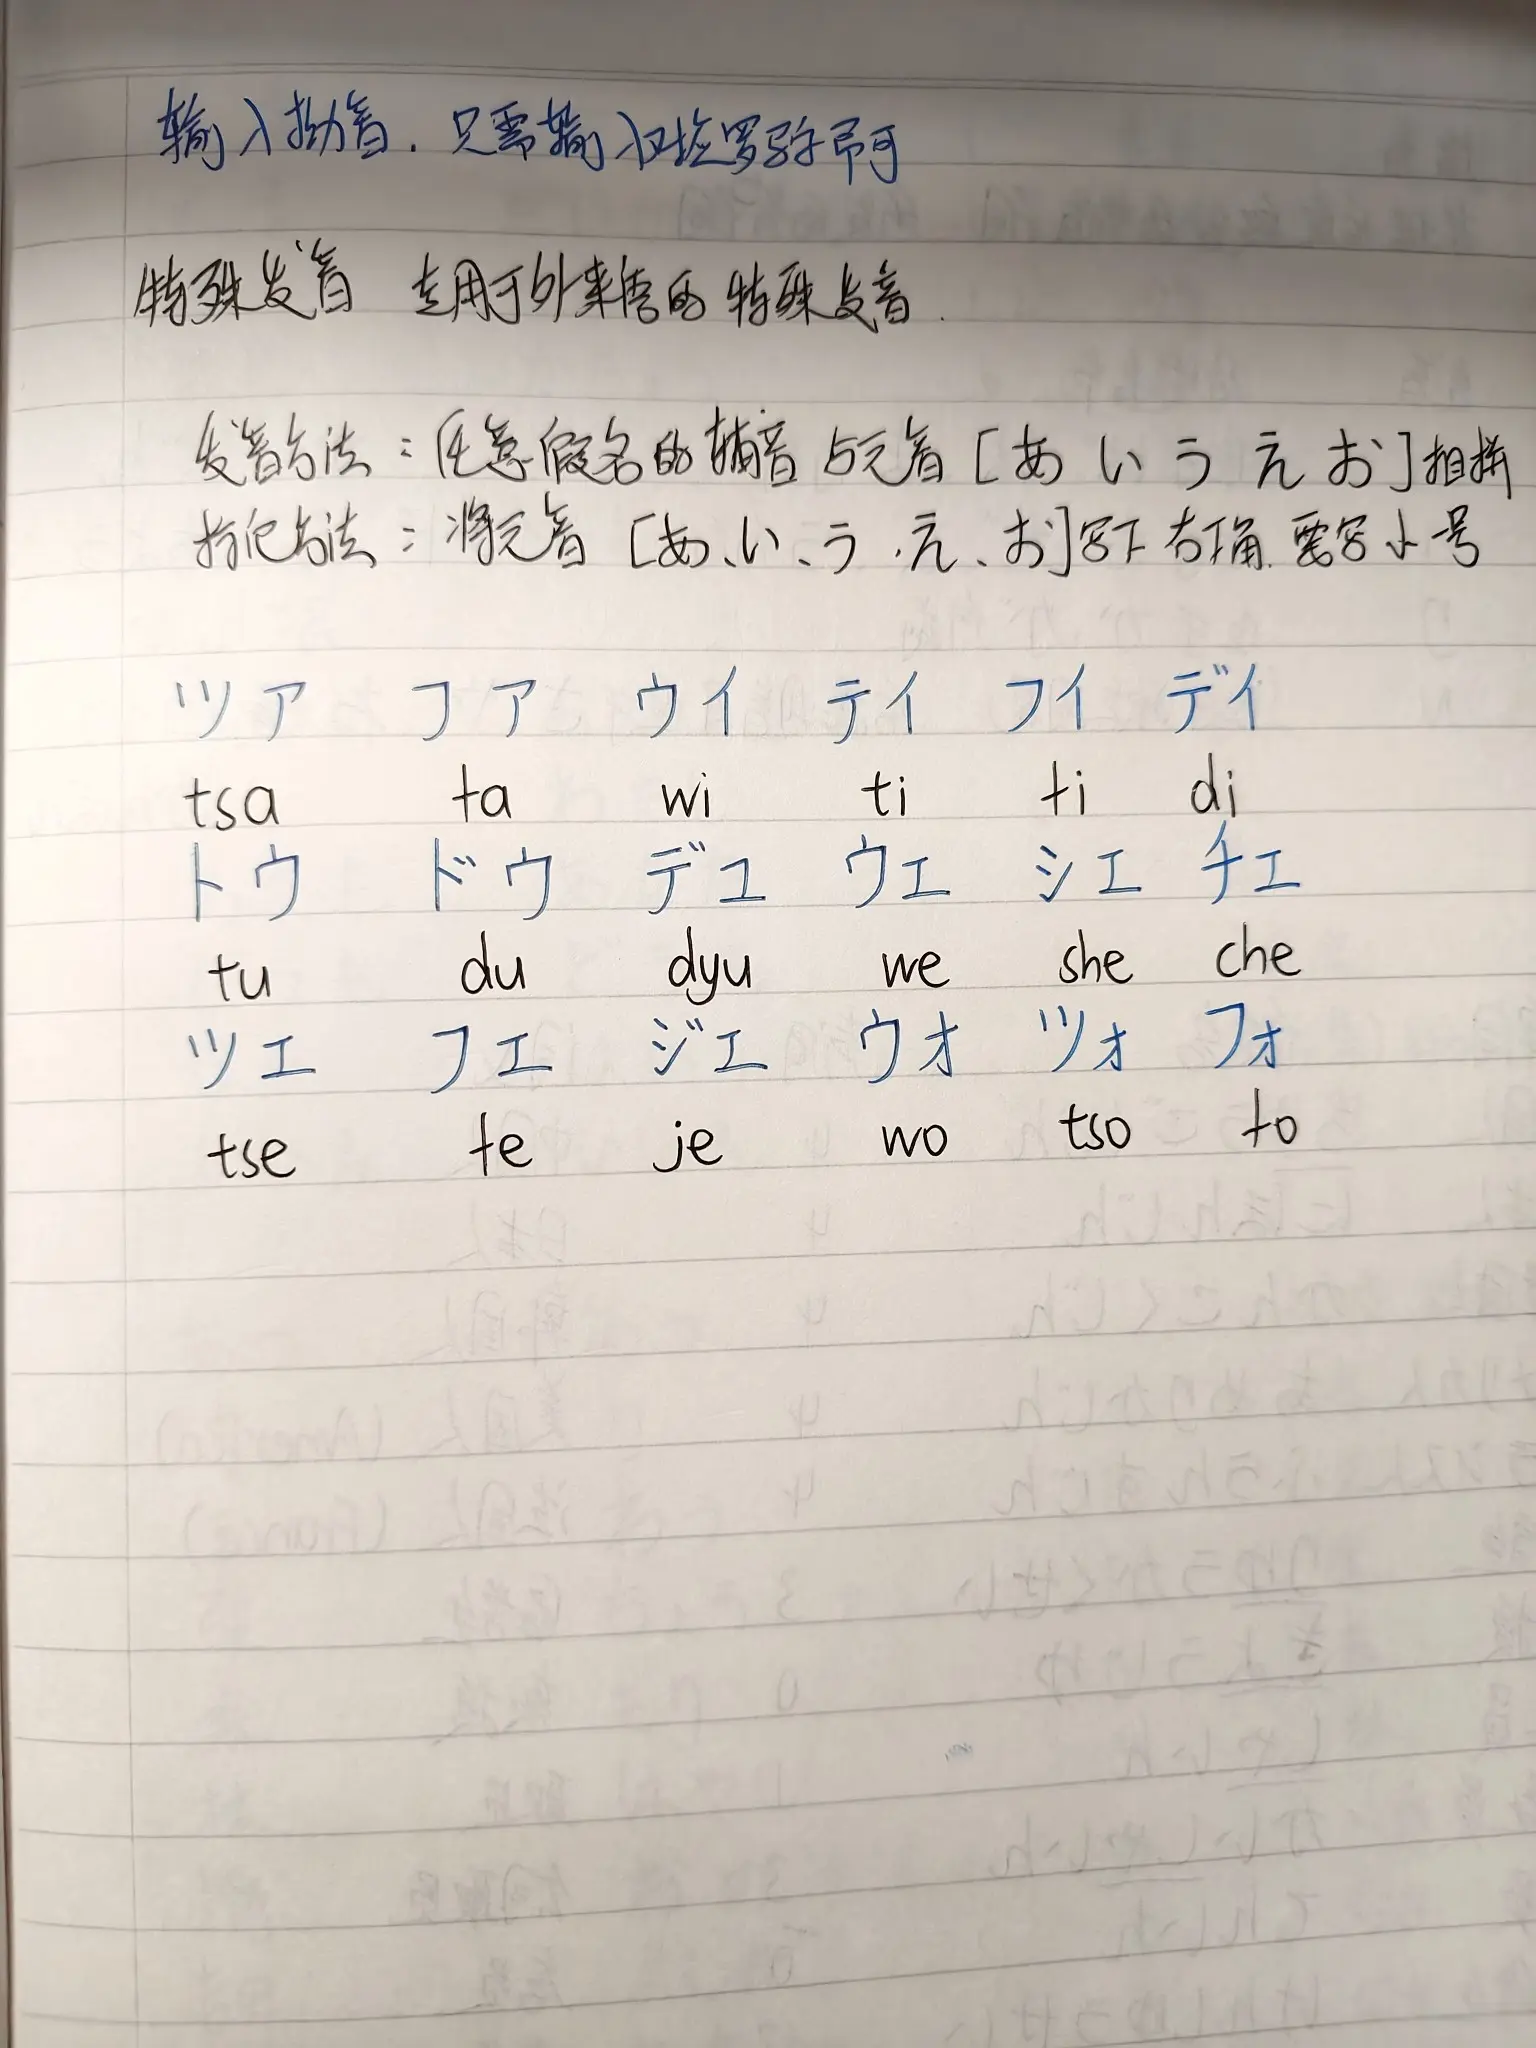 输入拗音．只需输入对应罗马字即可
特殊发音 专用于外来语的特殊发音．
发音方法：任意假名的辅音与元音[あ い う え お]相拼
书记方法：将元音[あ、い、う、え、お]写下右下角．要写小号
ツァ ファ ウィ ティ フィ ディ
tsa fa wi ti fi di
トゥ ドゥ デュ ウェ シェ チェ
tu du dyu we she che
ツェ フェ ジェ ウォ ツォ フォ
tse fe je wo tso fo